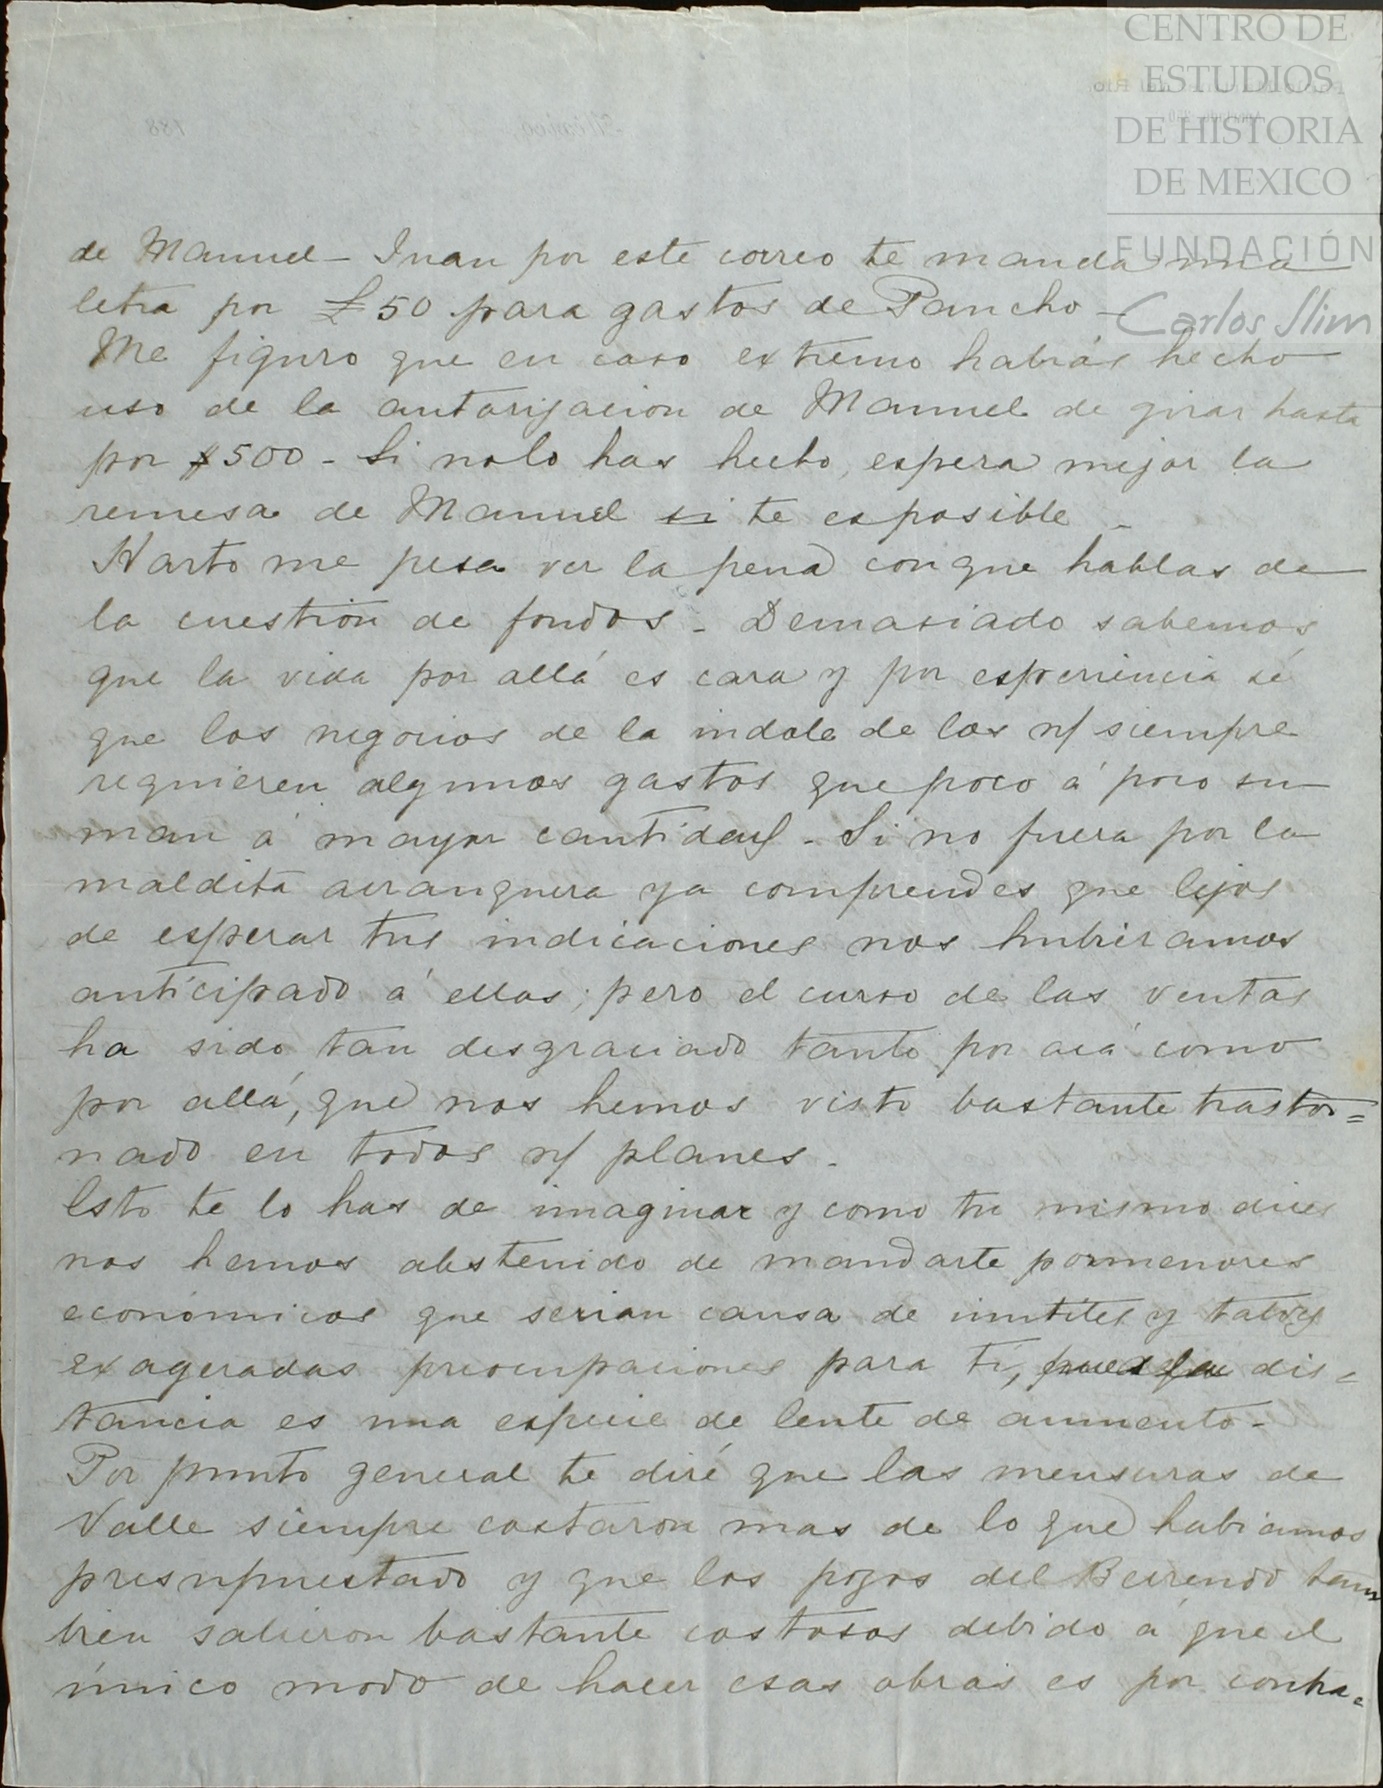 CENTRO DE
ESTUDIOS
DE HISTORIA
DE MEXICO
FUNDACIÓN
Carlos Slim
de Manuel – Juan por este correo te manda una
letra por £50 para gastos de Pancho –
Me figuro que en caso extremo habrás hecho
uso de la autorizacion de Manuel de girar hasta
por $500 – Si no lo has hecho, espera mejor la
remesa de Manuel si te es posible –
Harto me pesa ver la pena con que hablas de
la cuestión de fondos – Demasiado sabemos
que la vida por allá es cara y por esperiencia sé
que los negocios de la indole de los n/ siempre
requieren algunos gastos que poco á poco su-
man á mayor cantidad – Si no fuera por la
maldita arranquera ya comprendes que lejos
de esperar tus indicaciones nos hubieramos
anticipado á ellas; pero el curso de las ventas
ha sido tan desgraciado tanto por acá como
por allá, que nos hemos visto bastante trastor=
nado en todos n/ planes –
Esto te lo has de imaginar y como tu mismo dices
nos hemos abstenido de mandarte pormenores
económicos que serian causa de inutiles y talvez
exageradas preocupaciones para tí, pues la dis=
tancia es una especie de lente de aumento –
Por punto general te diré que las mensuras de
Valle siempre costaron mas de lo que habiamos
presupuestado y que los pozos del Berrendo tam
bien salieron bastante costosos debido á que el
único modo de hacer esas obras es por contra=